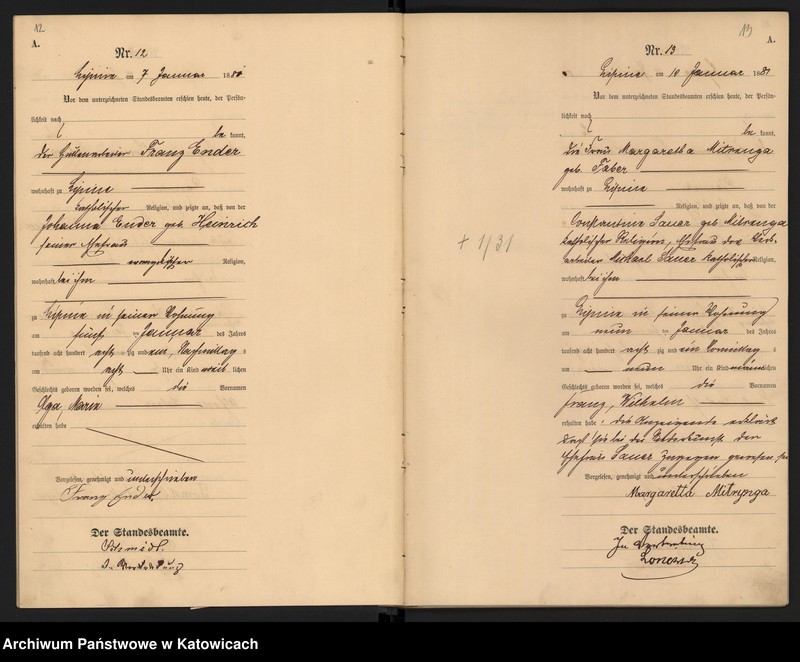 12
A.
Nr. 12
Lipine am 7 Januar 188
Vor dem unterzeichneten Standesbeamten erschien heute, der Persön-
lichkeit nach
be kannt,
der Hüttenarbeiter Franz Ender
wohnhaft zu Lipine
katholischer Religion, und zeigte an, daß von der
Johanna Ender geb. Heinrich
seiner Ehefrau
evangelischer Religion,
wohnhaft bei ihm
zu Lipine in seiner Wohnung
am fünf ten Januar des Jahres
tausend acht hundert acht zig und ein, Nachmittag s
um acht Uhr ein Kind weib lichen
Geschlechts geboren worden sei, welches die Vornamen
Olga, Marie
erhalten habe
Vorgelesen, genehmigt und unterschrieben
Franz Ender.
Der Standesbeamte.
Schmidt.
In Vertretung
13
A.
Nr. 13
Lipine am 10 Januar 1881
Vor dem unterzeichneten Standesbeamten erschien heute, der Persön-
lichkeit nach
be kannt,
die Frau Margaretha Mitrenga
geb. Faber
wohnhaft zu Lipine
Religion, und zeigte an, daß von der
Constantine Sauer geb. Mitrenga
katholischer Religion, Ehefrau des
arbeiter Michael Sauer katholischer Religion,
wohnhaft bei ihm
zu Lipine in seiner Wohnung
am neun ten Januar des Jahres
tausend acht hundert acht zig und ein Vormittag s
um neun Uhr ein Kind männlichen
Geschlechts geboren worden sei, welches die Vornamen
Franz, Wilhelm
erhalten habe; die Anzeigende erklärt
daß sie bei der Niederkunft der
Ehefrau Sauer zugegen gewesen sei
Vorgelesen, genehmigt und unterschrieben
Margaretta Mitrynga
Der Standesbeamte.
In Vertretung
+ 1/31
Archiwum Państwowe w Katowicach